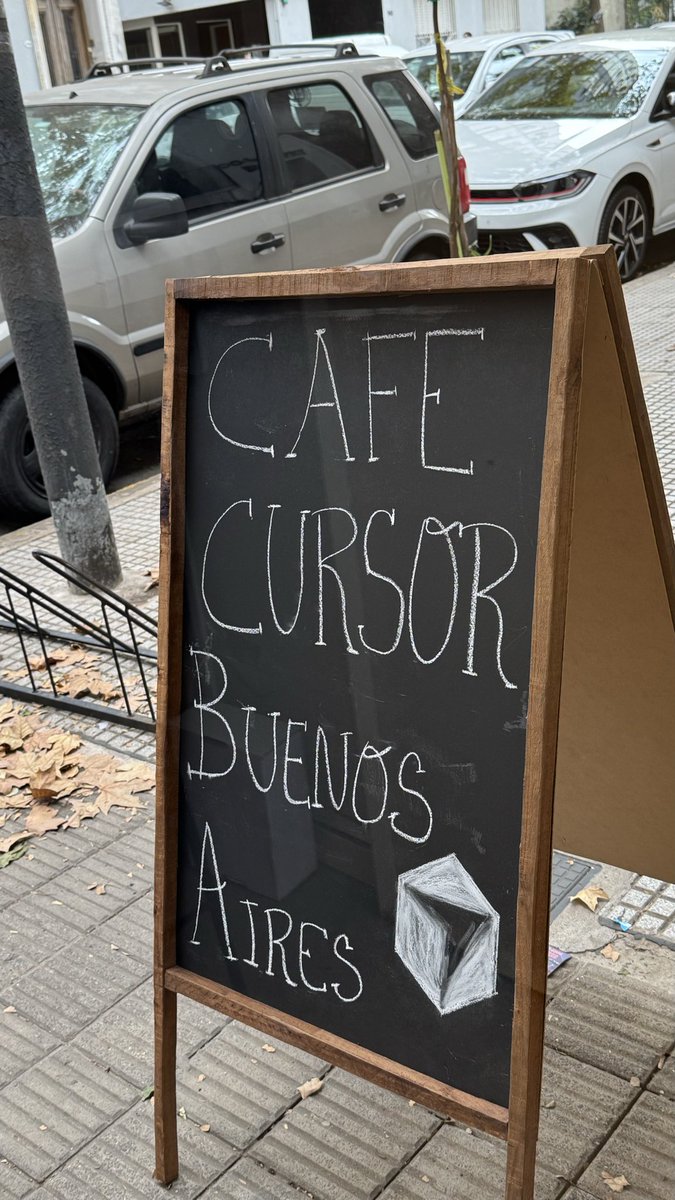 CAFE
CURSOR
BUENOS
AIRES